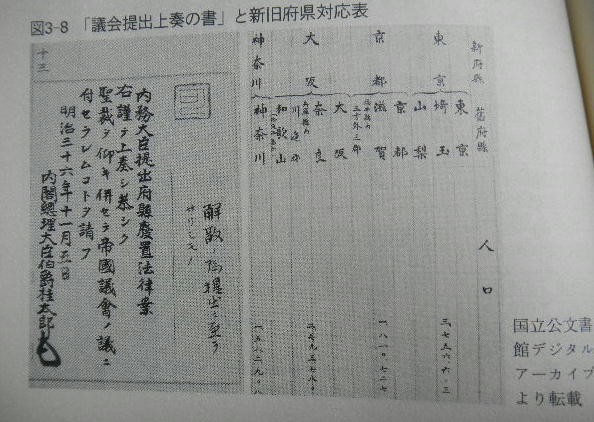 図3-8 「議会提出上奏の書」と新旧府県対応表
新府縣
舊府縣
人口
東京
東京
埼玉
山梨
京都
京都
滋賀
大阪
大阪
奈良
和歌山
神奈川
神奈川
解散ノ為提出ニ至ラ
サリシモノ
十三
内務大臣提出府縣廢置法律案
右謹テ上奏シ恭シク
聖裁ヲ仰キ併セテ帝國議會ノ議ニ
付セラレムコトヲ請フ
明治三十六年十一月
内閣總理大臣伯爵桂太郎
国立公文書
館デジタル
アーカイブ
より転載